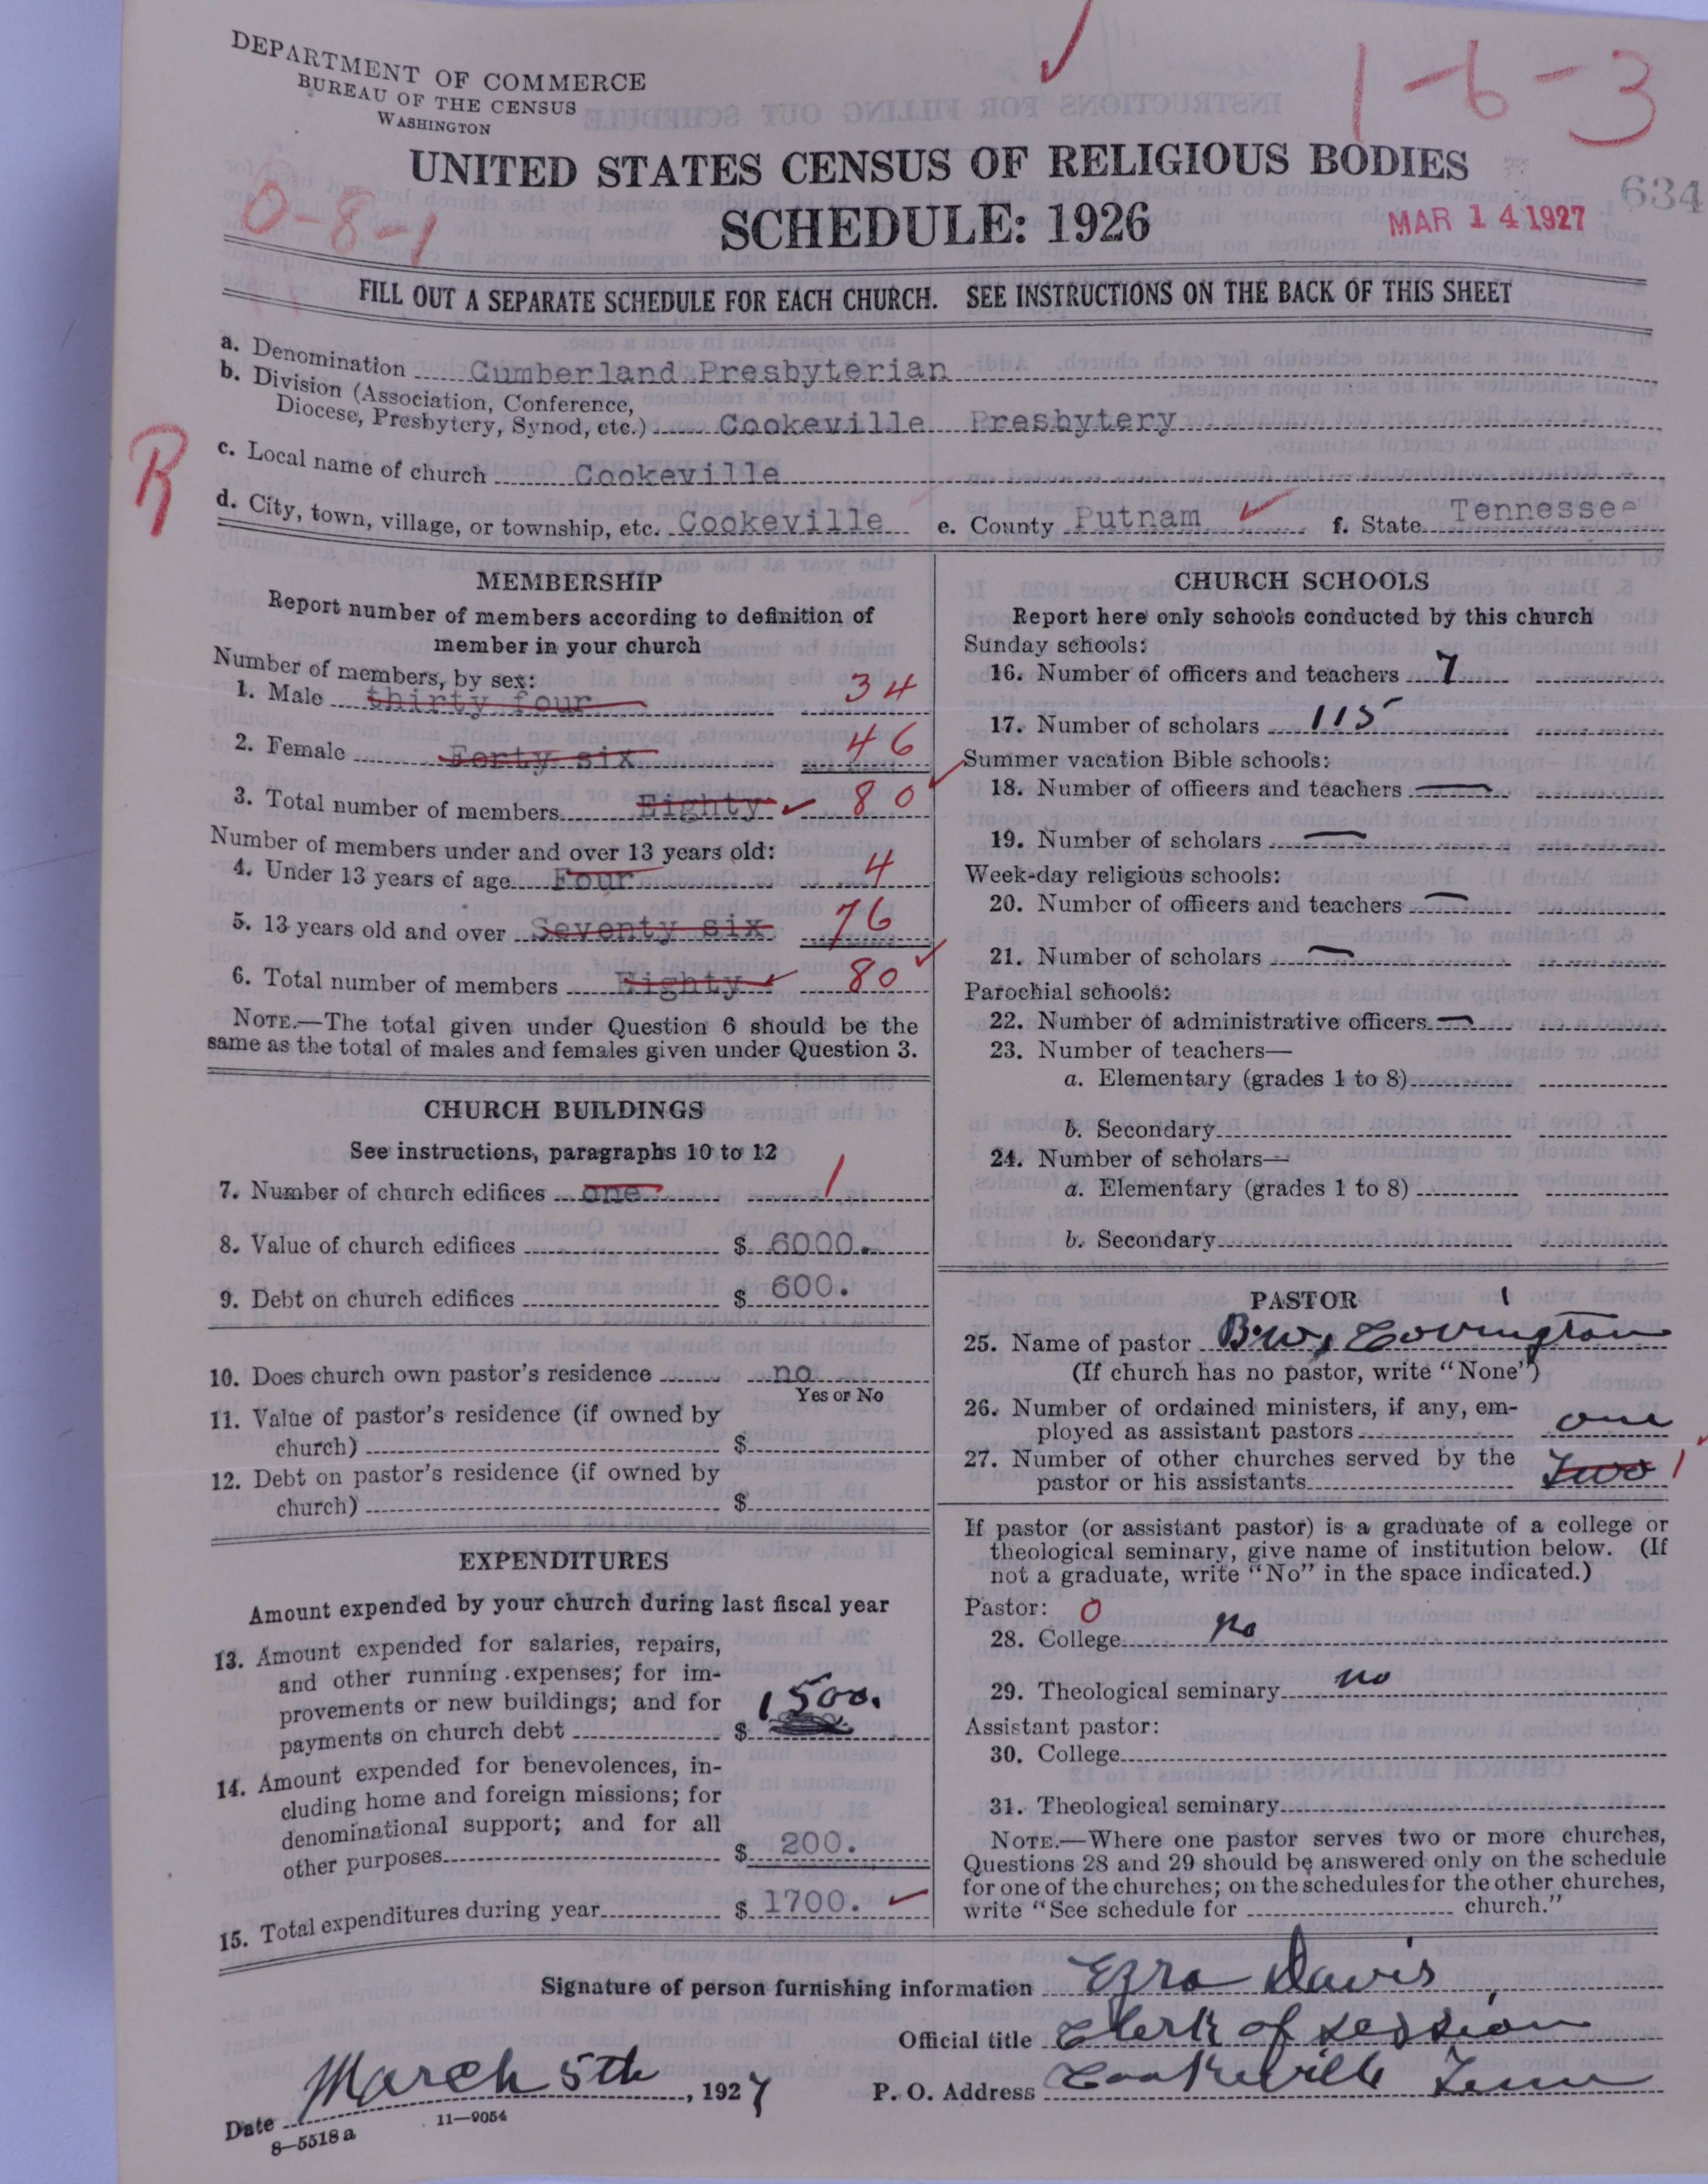 DEPARTMENT OF COMMERCE
BUREAU OF THE CENSUS
WASHINGTON
1-6-3
UNITED STATES CENSUS OF RELIGIOUS BODIES
634
0-8-1
SCHEDULE: 1926
MAR 14 1927
FILL OUT A SEPARATE SCHEDULE FOR EACH CHURCH. SEE INSTRUCTIONS ON THE BACK OF THIS SHEET
a. Denomination Cumberland Presbyterian
b. Division (Association, Conference,
Diocese, Presbytery, Synod, etc.) Cookeville Presbytery
R
c. Local name of church Cookeville
d. City, town, village, or township, etc. Cookeville e. County Putnam f. State Tennessee
MEMBERSHIP
Report number of members according to definition of
member in your church
Number of members, by sex:
1. Male thirty four 34
2. Female Forty six 46
3. Total number of members Eighty 80
Number of members under and over 13 years old:
4. Under 13 years of age Four 4
5. 13 years old and over Seventy six 76
6. Total number of members Eighty 80
NOTE.—The total given under Question 6 should be the
same as the total of males and females given under Question 3.
CHURCH BUILDINGS
See instructions, paragraphs 10 to 12
7. Number of church edifices one 1
8. Value of church edifices $ 6000.
9. Debt on church edifices $ 600.
10. Does church own pastor's residence no
Yes or No
11. Value of pastor's residence (if owned by
church) $
12. Debt on pastor's residence (if owned by
church) $
EXPENDITURES
Amount expended by your church during last fiscal year
13. Amount expended for salaries, repairs,
and other running expenses; for im-
provements or new buildings; and for
payments on church debt $ 1500.
14. Amount expended for benevolences, in-
cluding home and foreign missions; for
denominational support; and for all
other purposes $ 200.
15. Total expenditures during year $ 1700.
CHURCH SCHOOLS
Report here only schools conducted by this church
Sunday schools:
16. Number of officers and teachers 7
17. Number of scholars 115
Summer vacation Bible schools:
18. Number of officers and teachers —
19. Number of scholars —
Week-day religious schools:
20. Number of officers and teachers —
21. Number of scholars —
Parochial schools:
22. Number of administrative officers —
23. Number of teachers—
a. Elementary (grades 1 to 8)
b. Secondary
24. Number of scholars—
a. Elementary (grades 1 to 8)
b. Secondary
PASTOR 1
25. Name of pastor B.W. Covington
(If church has no pastor, write "None")
26. Number of ordained ministers, if any, em-
ployed as assistant pastors one
27. Number of other churches served by the
pastor or his assistants Two 1
If pastor (or assistant pastor) is a graduate of a college or
theological seminary, give name of institution below. (If
not a graduate, write "No" in the space indicated.)
Pastor: 0
28. College no
29. Theological seminary no
Assistant pastor:
30. College
31. Theological seminary
NOTE.—Where one pastor serves two or more churches,
Questions 28 and 29 should be answered only on the schedule
for one of the churches; on the schedules for the other churches,
write "See schedule for church."
Signature of person furnishing information Ezra Davis
Official title Clerk of session
Date March 5th, 1927 P. O. Address Cookeville Tenn
8-5518 a 11—9054